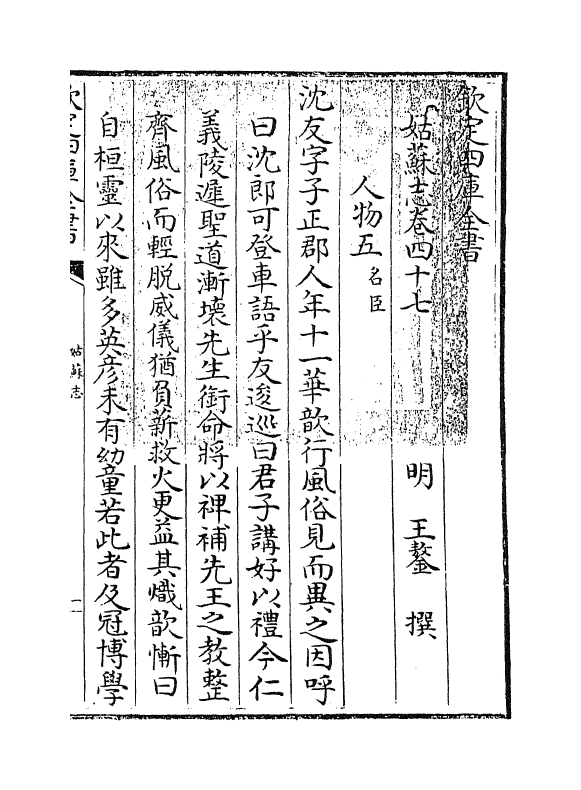 欽定四庫全書
姑蘇志卷四十七　明　王鏊　撰
人物五 名臣
沈友字子正郡人年十一華歆行風俗見而異之因呼
曰沈郎可登車語乎友逡巡曰君子講好以禮今仁
義陵遲聖道漸壊先生銜命將以禆補先王之教整
齊風俗而輕脱威儀猶負薪救火更益其熾歆慚曰
自桓靈以來雖多英彦未有幼童若此者及冠博學
欽定四庫全書
姑蘇志